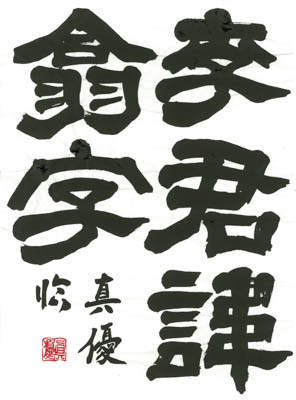 李君諱
翕字
真優
臨